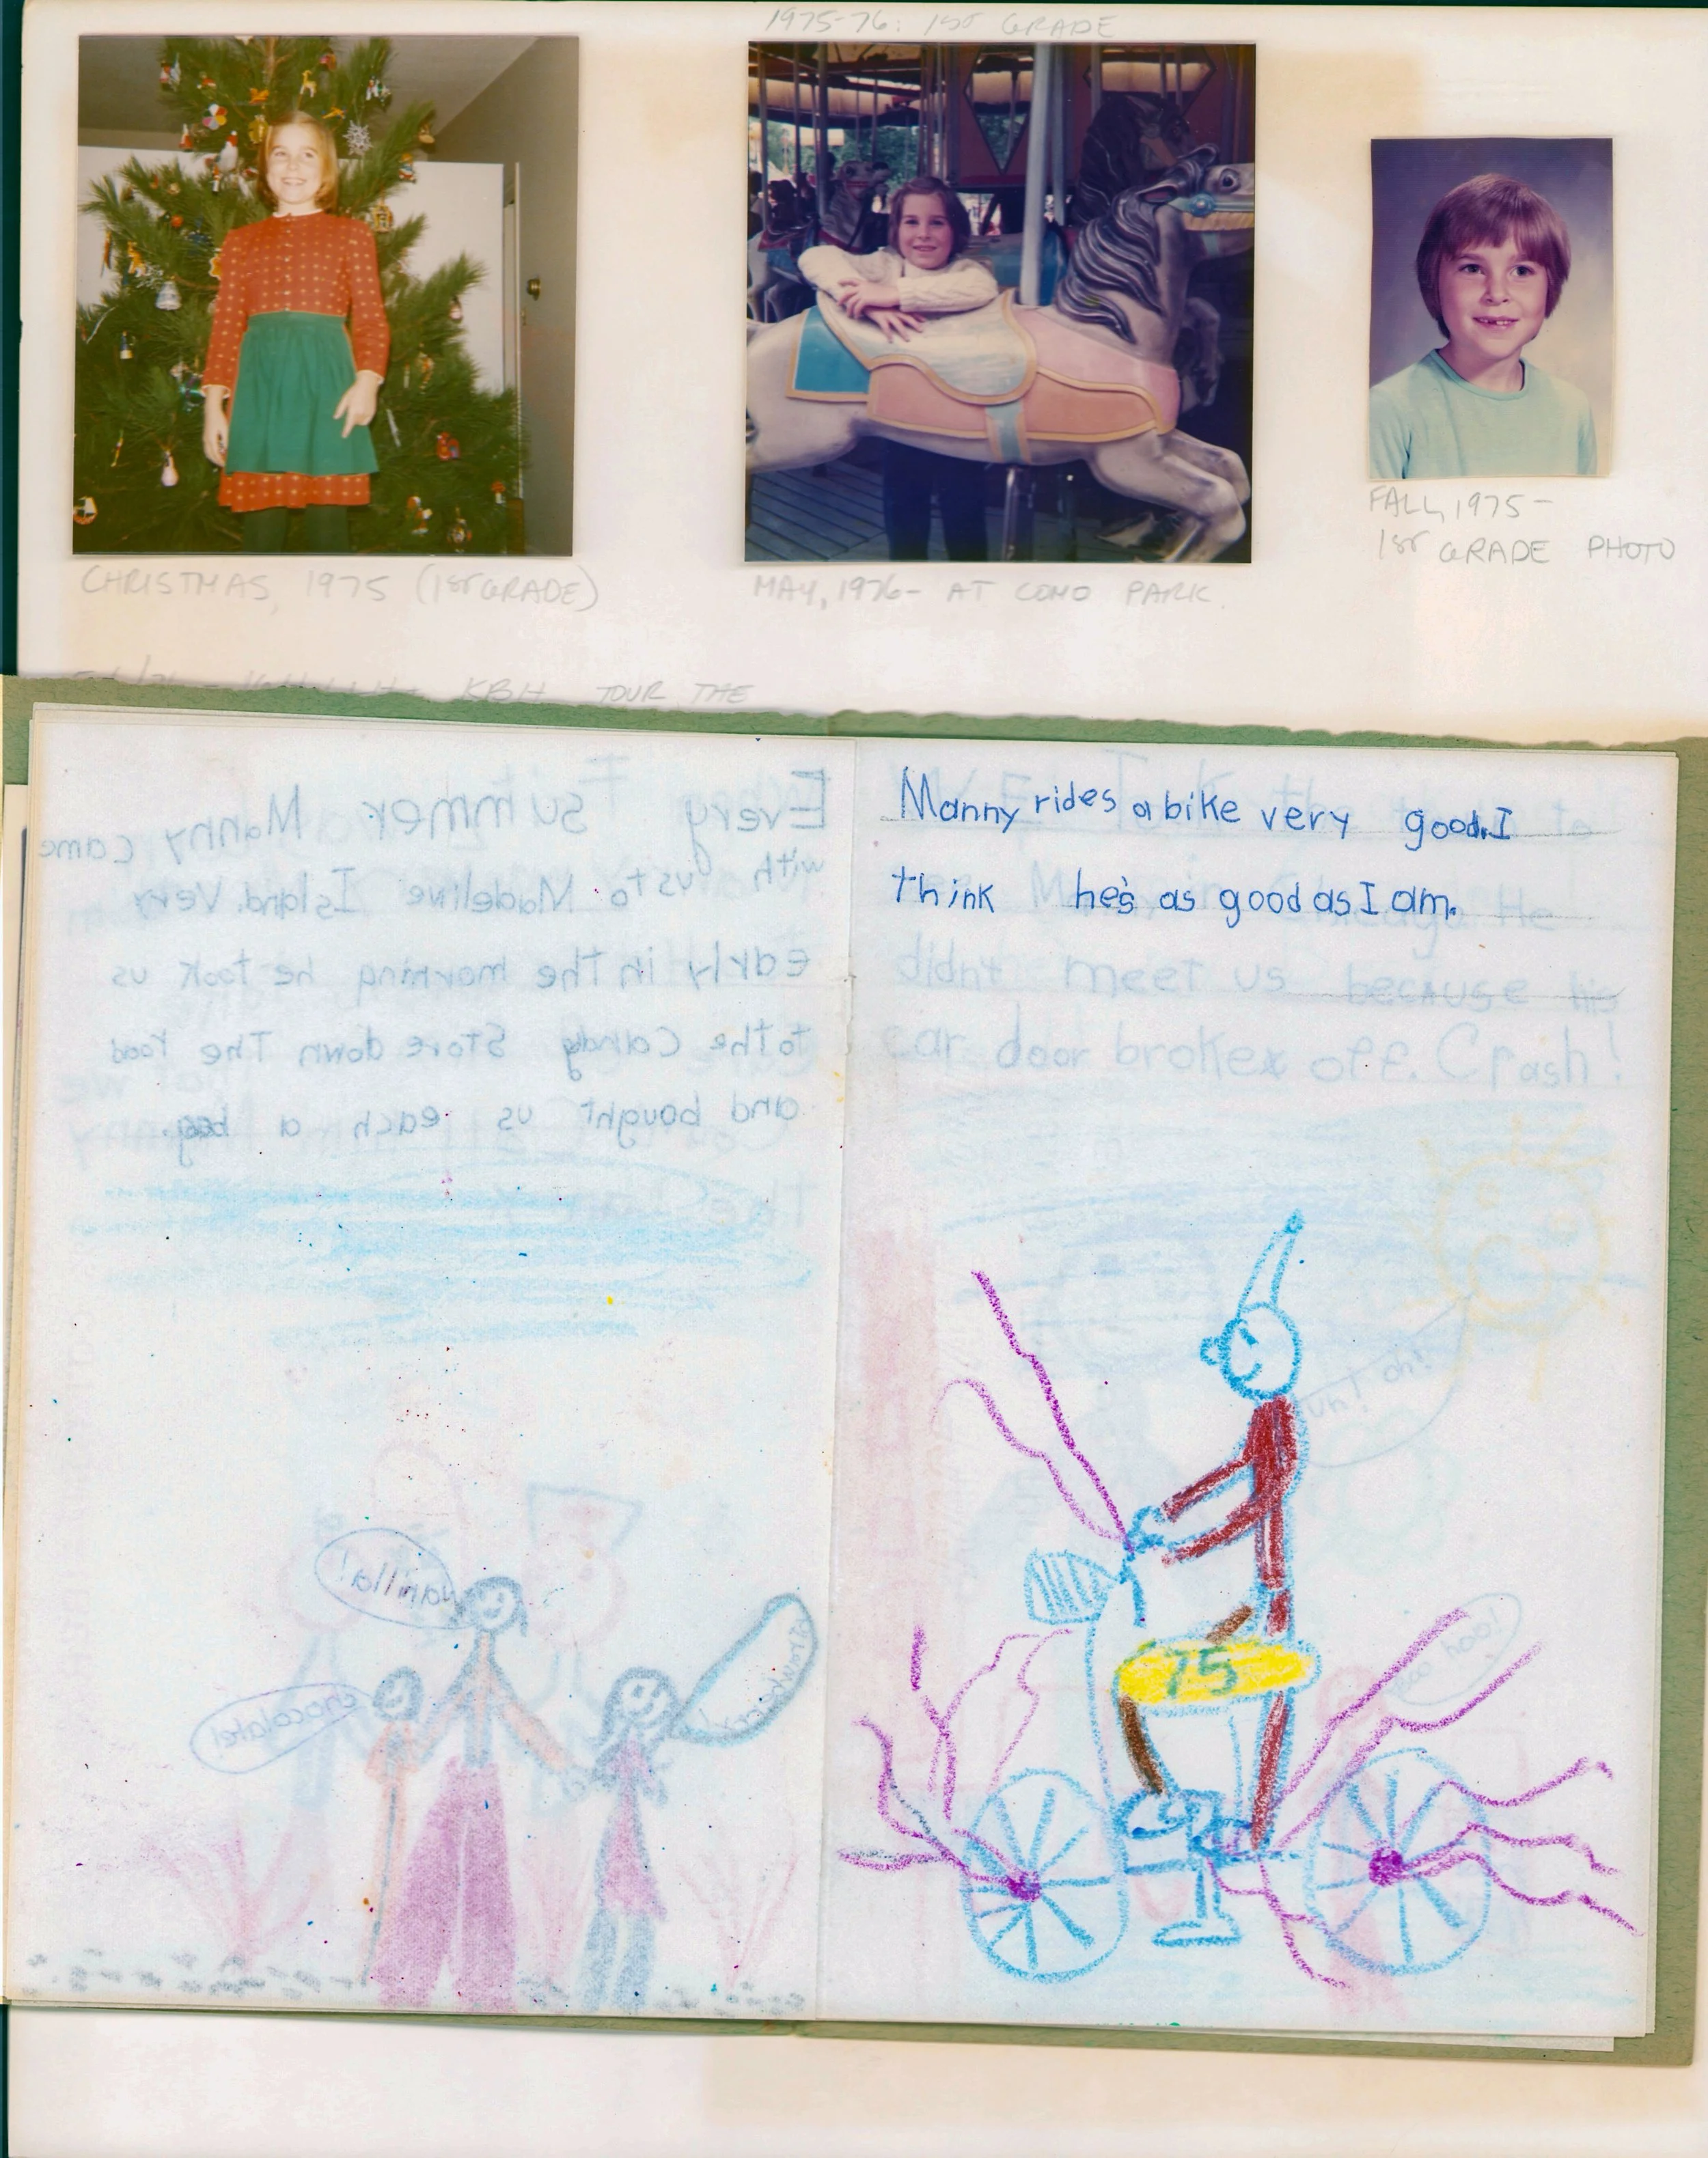 1975-76: 1ST GRADE
CHRISTMAS, 1975 (1ST GRADE)
MAY, 1976- AT COMO PARK.
FALL, 1975-
1ST GRADE PHOTO
KBH TOUR THE
Every summer Manny came
with us to Madeline Island. Very
early in the morning he took us
to the Candy Store down The road
and bought us each a bag.
vanilla!
chocolate!
Manny rides a bike very good. I
think he's as good as I am.
to
He
didn't meet us because his
car door broke off. Crash!
uh! oh!
boo! oo
75